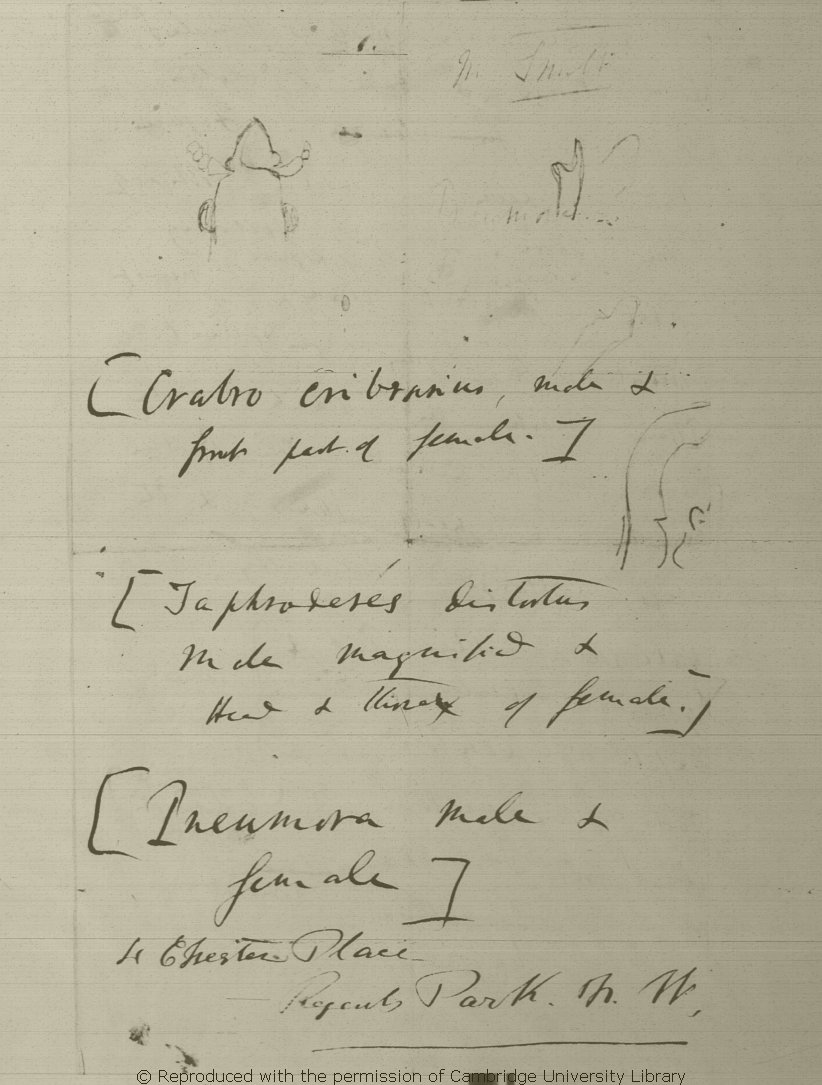 1.
Mr Smith
Pneumora
[Crabro cribrarius, male &
front part of female.]
[Taphroderes distortus
Male magnified &
Head & thorax of female.]
[Pneumora male &
female]
4 Chester Place
Regents Park. N. W.
© Reproduced with the permission of Cambridge University Library